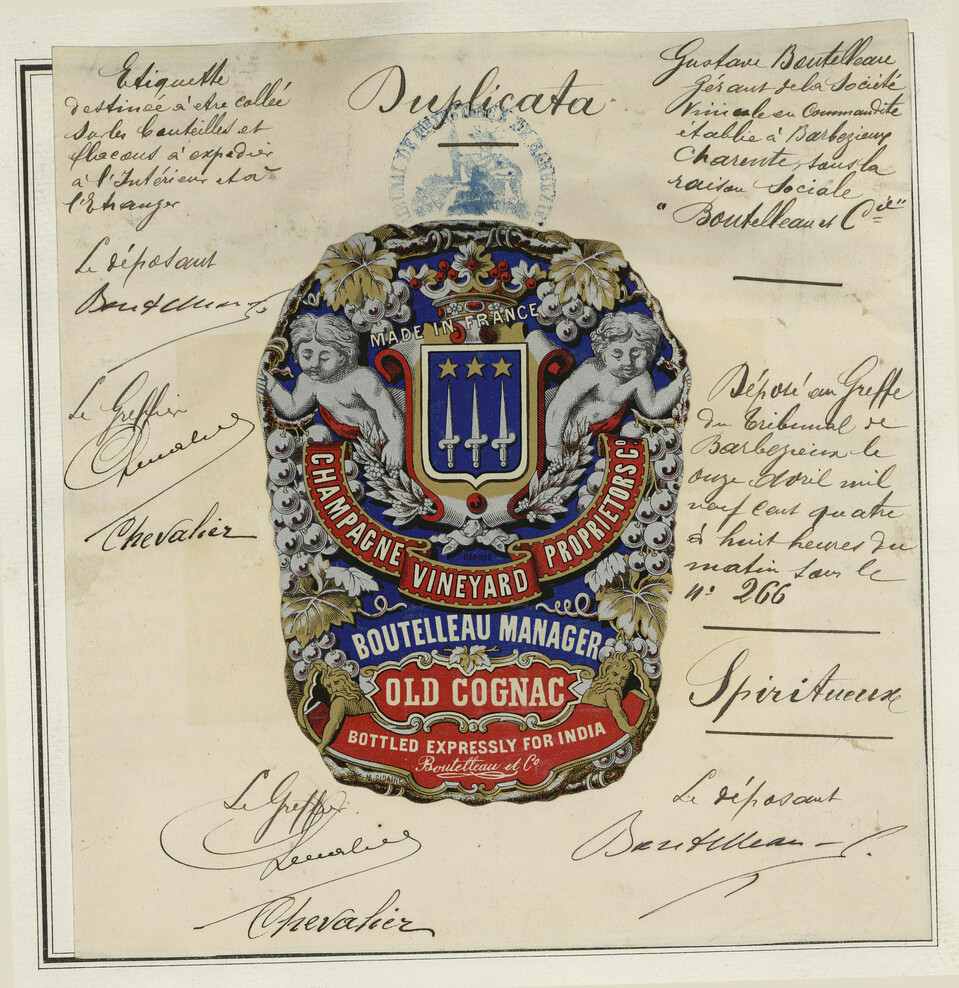 Duplicata
Etiquette
destinée à etre collée
sur les bouteilles et
flacons à expedier
à l'Intérieur et à
l'Etranger
Le déposant
Boutelleau
Le Greffier
Chevalier
Chevalier
Gustave Boutelleau
Gérant de la Société
Vinicole en Commandite
établie à Barbezieux
Charente, sous la
raison Sociale
"Boutelleau et Cie"
Déposé au Greffe
du Tribunal de
Barbezieux le
onze Avril mil
neuf cent quatre
à huit heures du
matin sous le
n° 266
Spiritueux
Le déposant
Boutelleau
MADE IN FRANCE
CHAMPAGNE VINEYARD PROPRIETORS Co
DÉPOSÉ
BOUTELLEAU MANAGER
OLD COGNAC
BOTTLED EXPRESSLY FOR INDIA
Boutelleau et Co
Le Greffier
Chevalier
Chevalier